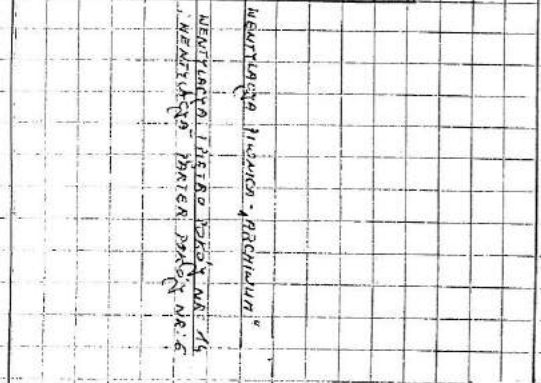 WENTYLACJA PIWNICA - "ARCHIWUM"
WENTYLACJA I PIĘTRO POKÓJ NR: 14
WENTYLACJA PARTER POKÓJ NR: 6